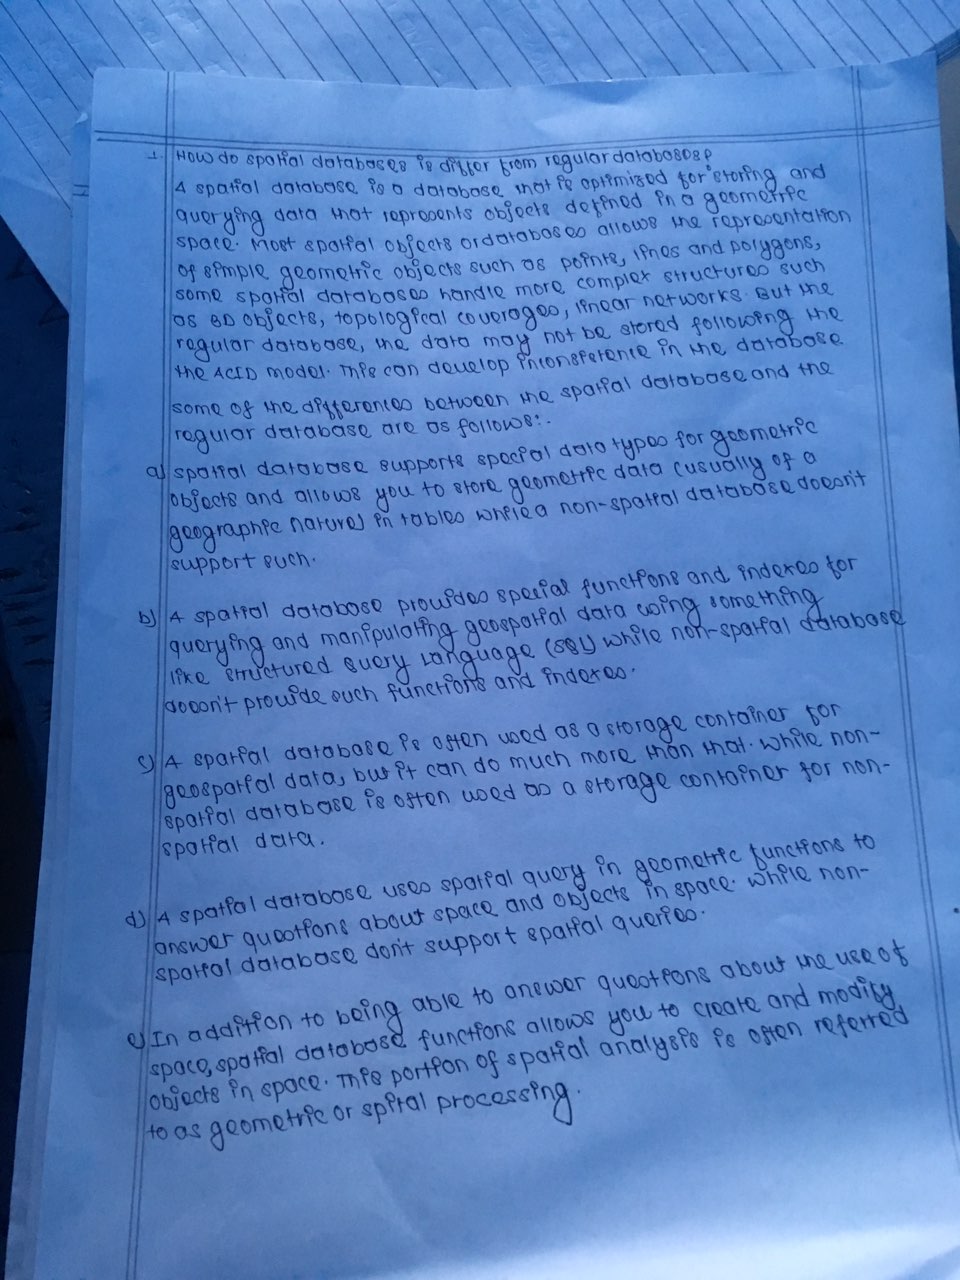 1. How do spatial databases is differ from regular databases?
A spatial database is a database that is optimized for storing and
querying data that represents objects defined in a geometric
space. Most spatial objects or databases allows the representation
of simple geometric objects such as points, lines and polygons,
some spatial databases handle more complex structures such
as 3D objects, topological coverages, linear networks. But the
regular database, the data may not be stored following the
the ACID model. This can develop in the database
some of the differences between the spatial database and the
regular database are as follows:.
a) spatial database supports special data types for geometric
objects and allows you to store geometric data (usually of a
geographic nature) in tables while a non-spatial database doesn't
support such.
b) A spatial database provides special functions and indexes for
querying and manipulating geospatial data using something
like structured Query Language (SQL) while non-spatial database
doesn't provide such functions and indexes.
c) A spatial database is often used as a storage container for
geospatial data, but it can do much more than that. while non-
spatial database is often used as a storage container for non-
spatial data.
d) A spatial database uses spatial query in geometric functions to
answer questions about space and objects in space. while non-
spatial database don't support spatial queries.
e) In addition to being able to answer questions about the use of
space, spatial database functions allows you to create and modify
objects in space. This portion of spatial analysis is often referred
to as geometric or spiral processing.